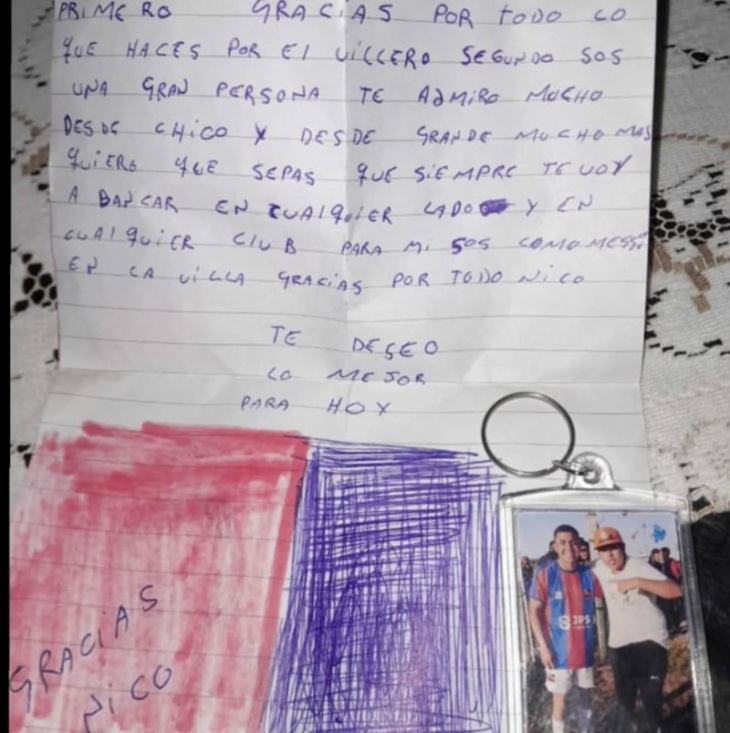 PRIMERO GRACIAS POR TODO LO
QUE HACES POR El VILLERO SEGUNDO SOS
UNA GRAN PERSONA TE ADMIRO MUCHO
DESDE CHICO Y DESDE GRANDE MUCHO MAS
QUIERO QUE SEPAS QUE SIEMPRE TE VOY
A BANCAR EN CUALQUIER LADO Y EN
CUALQUIER CLUB PARA MI SOS COMO MESSI
EN LA VILLA GRACIAS POR TODO NICO
TE DESEO
LO MEJOR
PARA HOY
GRACIAS
NICO